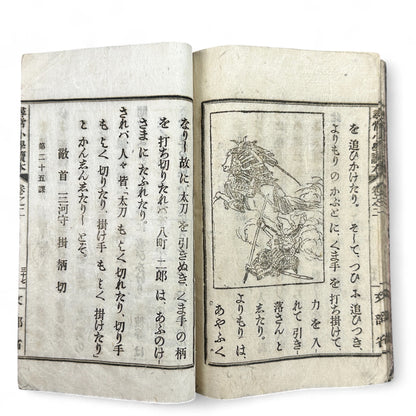 を追ひかけたり。そして、つひに追ひつき、
よりものかぶとに、くま手を打ち掛けて、
力を入
れて引き
落さんと
したり。
よりもりは、
あやふく
なりし故に、太刀を引きぬき、くま手の柄
を打ち切りたれバ、八町二郎は、あふのけ
さまにたふれたり。
されバ、人々皆、太刀もよく切れたり、切り手
もよく切りたり、掛け手もよく掛けたり
とかんしんしたりとぞ。
敵 首 三河守 掛 柄 切
第二十五課
尋常小學讀本 卷之二
三十七 文部省